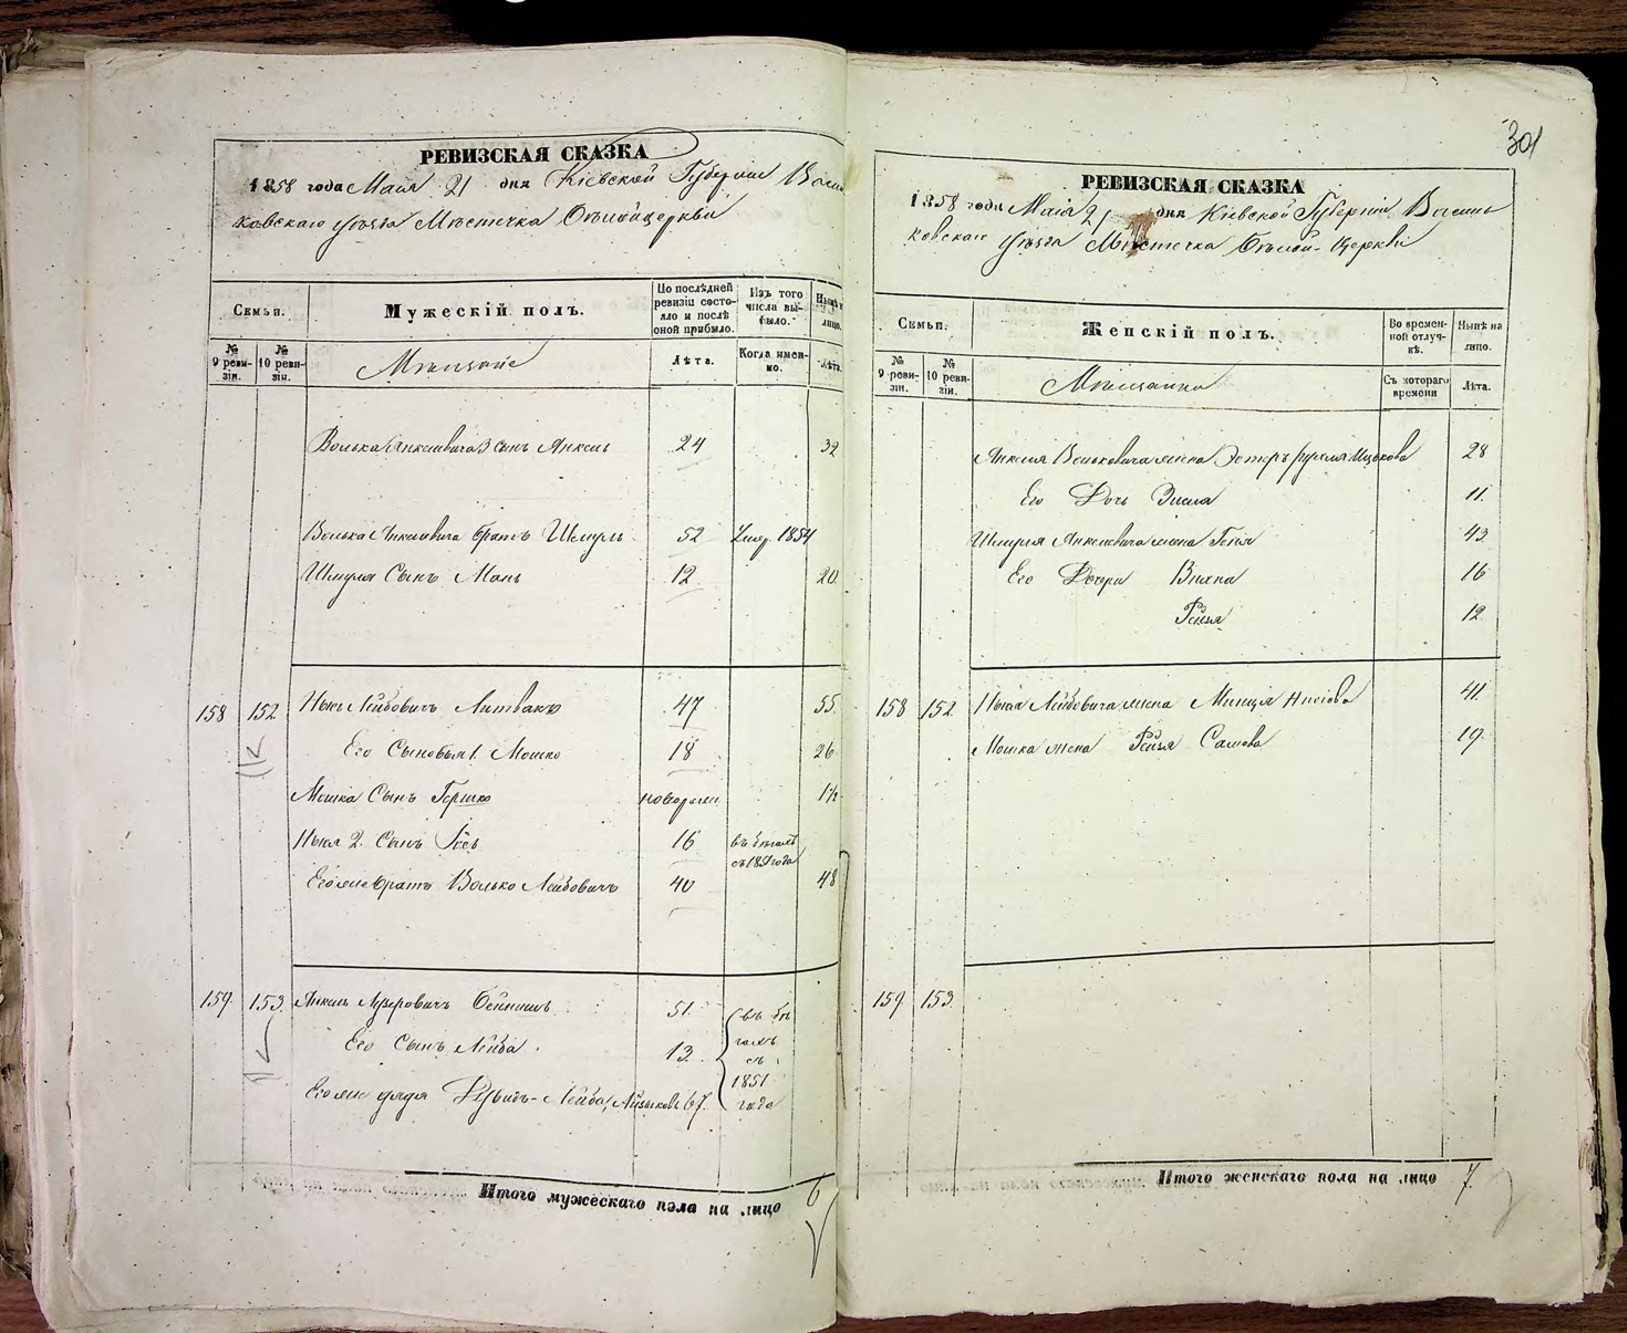 301
РЕВИЗСКАЯ СКАЗКА
1858 года Маія 21 дня Кіевской Губерніи Василь
ковскаго уѣзда Мѣстечка Бѣлойцеркви
Семьи.
Мужескій полъ.
По послѣдней ревизіи состояло и послѣ оной прибыло.
Изъ того числа выбыло.
Нынѣ на лицо.
№ 9 ревизіи.
№ 10 ревизіи.
Мѣщане
Лѣта.
Когда именно.
Лѣта.
Волька Янкелевича 3 сынъ Янкель 24 32
Волька Янкелевича братъ Шмуль 52 Умер. 1854
Шмуля Сынъ Мань 12 20
158 152 Лейбовичъ Литвакъ 47 55
Его Сыновья 1. Мошко 18 26
Мошка Сынъ Гершко новорожден 1½
2. Сынъ Іось 16 въ бѣгахъ
съ 1851 года
Его же братъ Волько Лейбовичъ 40 48
159 153 Янкель Лузеровичъ 51 въ бѣ
Его Сынъ Лейба 13 гахъ съ
Его же дядя Лейба 67. 1851 года
Итого мужескаго пола на лицо 6
РЕВИЗСКАЯ СКАЗКА
1858 года Маія 21 дня Кіевской Губерніи Василь
ковскаго уѣзда Мѣстечка Бѣлой-Церкви
Семьи.
Женскій полъ.
Во временной отлучкѣ.
Нынѣ на лицо.
№ 9 ревизіи.
№ 10 ревизіи.
Мѣщанки
Съ котораго времени
Лѣта.
Янкеля Вольковича жена Эстеръ 28
Его Дочь 11
Шмуля Янкелевича жена Геня 43
Его Дочери 16
Рейзя 12
158 152 Лейбовича жена 41
Мошка жена Рейзя 19
159 153
Итого женскаго пола на лицо 7.